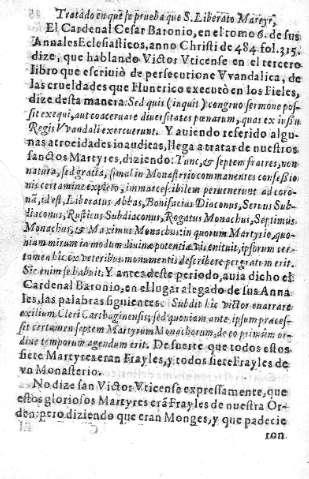 Tratado en que se prueba que S. Liberato Martyr,
El Cardenal Cesar Baronio, en el tomo 6. de sus
Annales Eclesiasticos, anno Christi de 484 fol. 315.
dize, que hablando Victor Vticense en el tercero
libro que escriuiò de persecutione Vvandalica, de
las crueldades que Hunerico executò en los Fieles,
dize desta manera: Sed quis (inquit) congruo sermone pos-
sit exequi, aut coaceruare diuersitates pœnarum, quas ex iussu
Regis Vvandali exercuerunt. Y auiendo referido algu-
nas atrocidades inauditas, llega a tratar de nuestros
sanctos Martyres, diziendo: Tunc, & septem fratres, non
natura, sed gratia, simul in Monasterio commanentes confessio-
nis certamine expleto, immarcescibilem peruenerunt ad coro-
nã, id est, Liberatus Abbas, Bonifacius Diaconus, Seruus Sub-
diaconus, Rusticus Subdiaconus, Rogatus Monachus, Septimus
Monachus, & Maximus Monachus: in quorum Martyrio, quo-
niam mirum in modum diuinæ potentiæ vis enituit, ipsorum cer-
tamen hic ex veteribus monumentis describere pergratum erit.
Sic enim se habuit. Y antes deste periodo, auia dicho el
Cardenal Baronio, en el lugar alegado de sus Anna
les, las palabras siguientes: Subdit hic victor enarrare
exilium Cleri Carthaginensis; sed quoniam ante ipsum præces-
sit certamen septem Martyrum Monachorum, de eo primùm or-
dine temporum agendum erit. De suerte que todos estos
siete Martyres eran Frayles, y todos siete Frayles de
vn Monasterio.
No dize san Victor Vticense expressamente, que
estos gloriosos Martyres erã Frayles de nuestra Or-
den; pero diziendo que eran Monges, y que padecie
ron